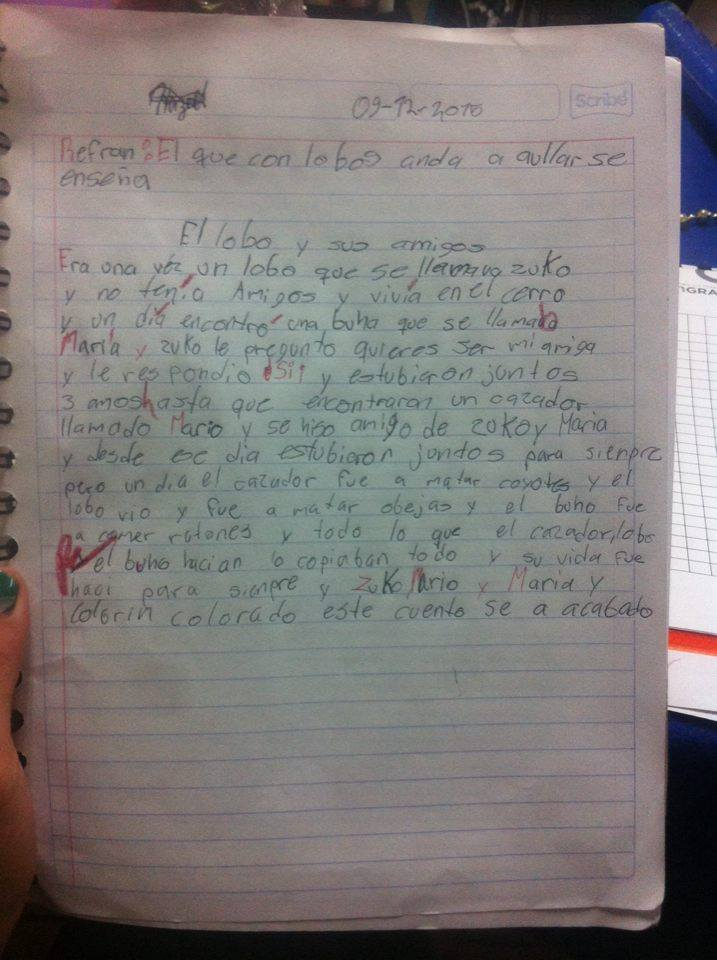 09-12-2010
Scribe
Refran: El que con lobos anda a aullar se
enseña
El lobo y sus amigos
Era una véz un lobo que se llamava zuko
y no tenía Amigos y vivía en el cerro
y un día encontro una buha que se llamaba
María y zuko le pregunto quieres ser mi amiga
y le respondio ¡Si! y estubieron juntos
3 anos hasta que encontraron un cazador
llamado Mario y se hiso amigo de zoko y Maria
y desde ese dia estubieron juntos para sienpre
pero un dia el cazador fue a matar coyotes y el
lobo vio y fue a matar obejas y el buho fue
a comer ratones y todo lo que el cazador, lobo
o el buho hacian lo copiaban todo y su vida fue
haci para sienpre y Zuko Mario y Maria y
colorin colorado este cuento se a acabado